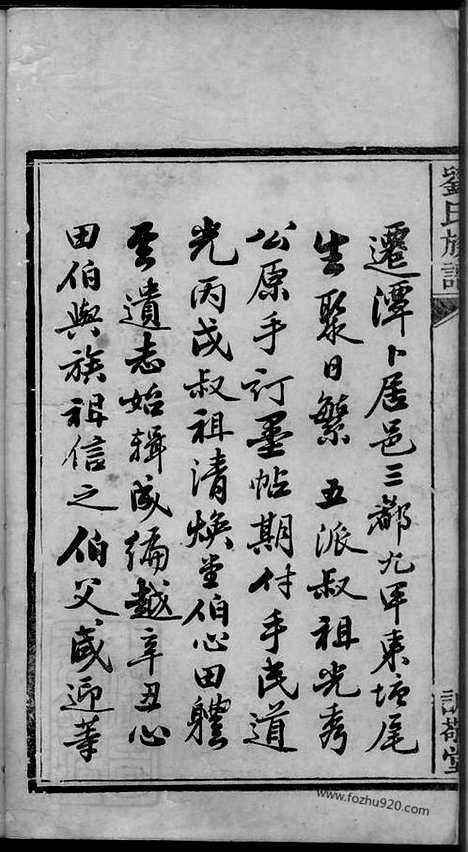 劉氏族譜
敬堂
遷潭卜居邑三都九甲東尾
生聚日繁五派叔祖光秀
公原手訂墨帖期付手民道
光丙戌叔祖清煥堂伯心田體
其遺志始輯成編越辛丑心
田伯與族祖信之伯父迎等
www.fozhu920.com